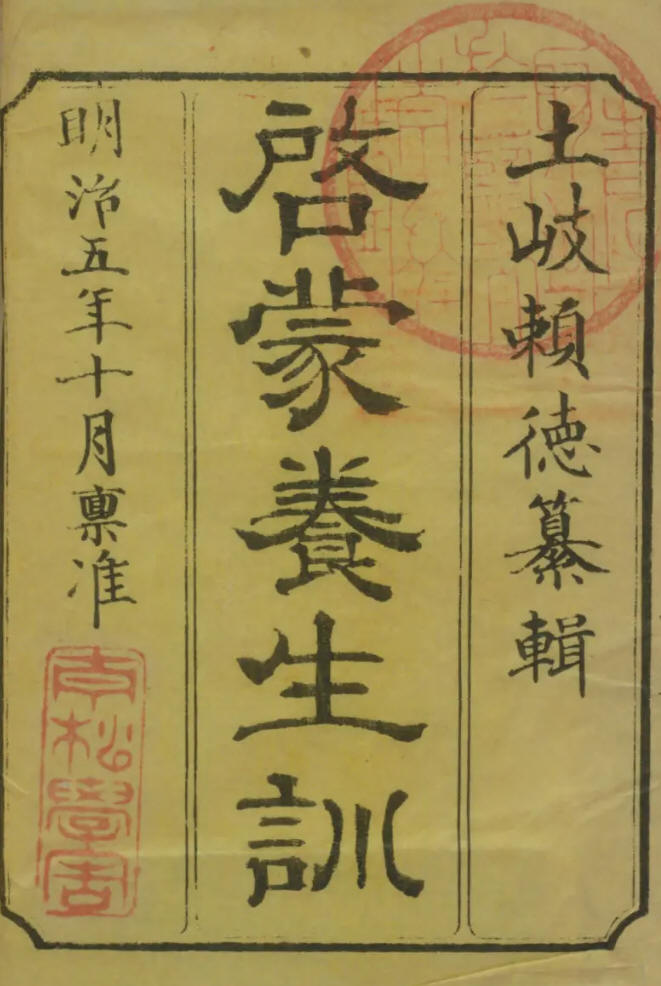 土岐頼徳纂輯
啓蒙養生訓
明治五年十月稟准